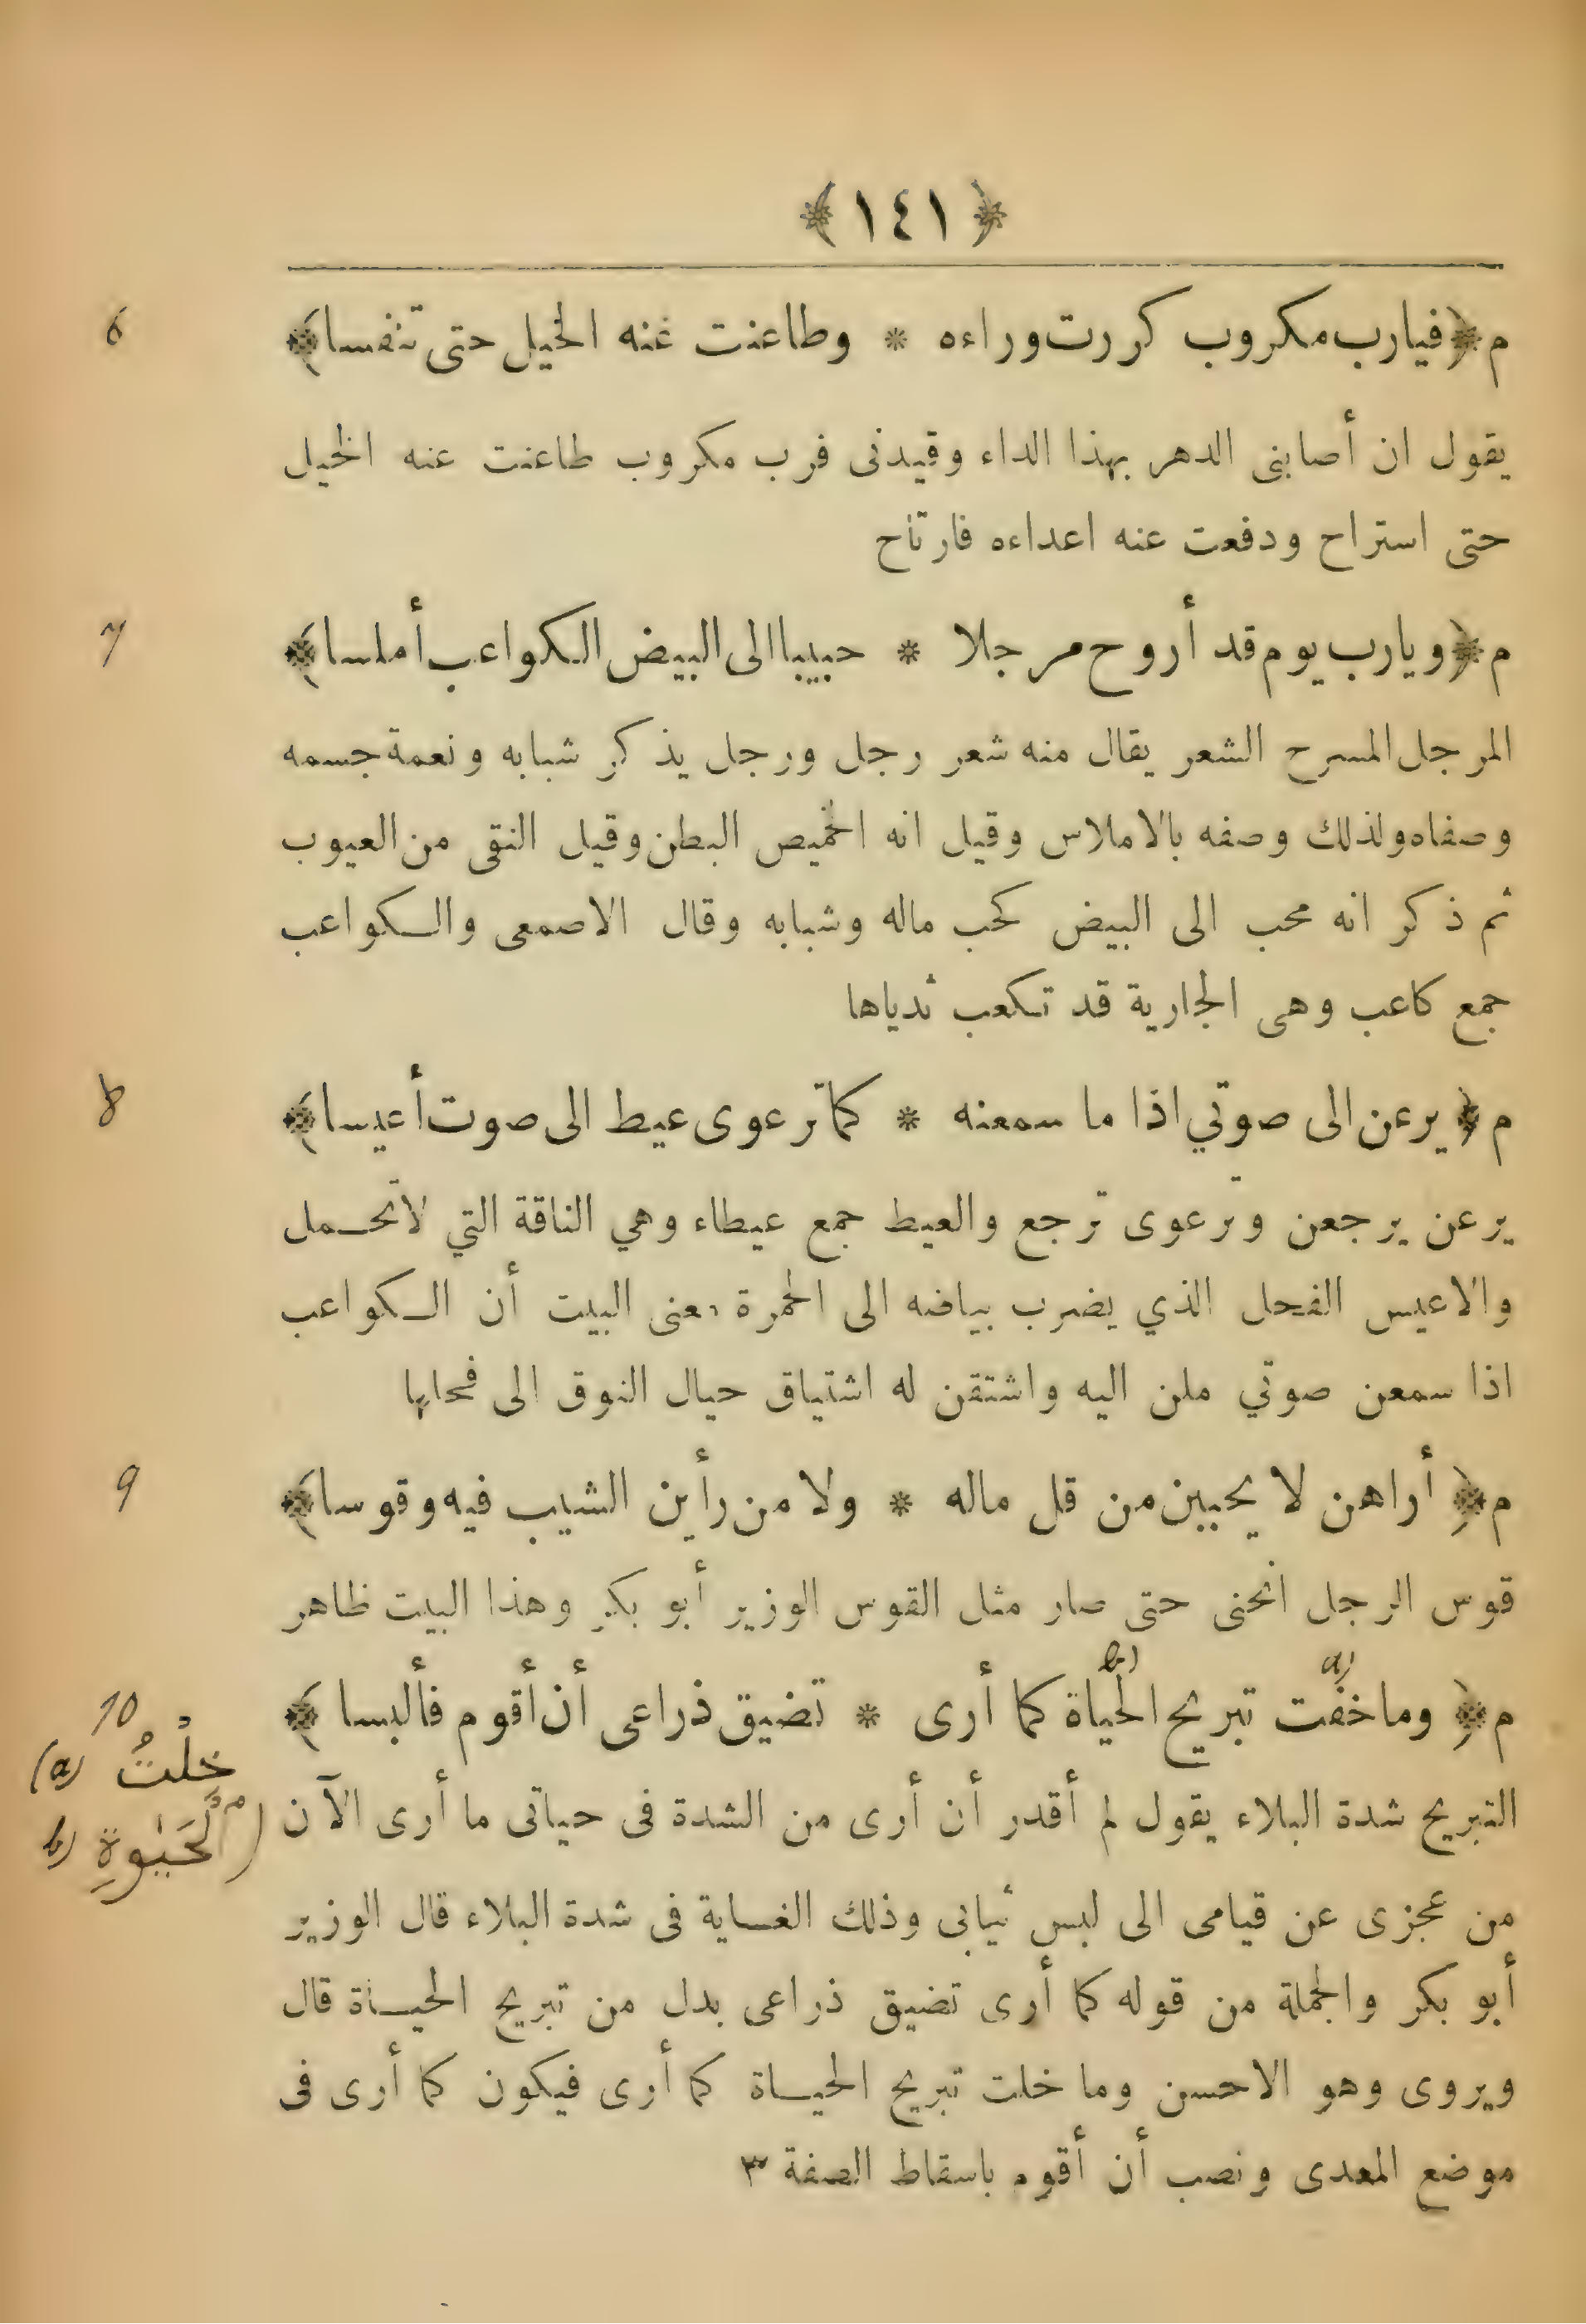 ﴿ ١٤١ ﴾
6
م ﴿فيارب مكروب كررت وراءه * وطاعنت عنه الخيل حتى تنفسا﴾
يقول ان أصابنى الدهر بهذا الداء وقيدنى فرب مكروب طاعنت عنه الخيل
حتى استراح ودفعت عنه اعداءه فارتاح
7
م ﴿ويارب يوم قد أروح مرجلا * حبيبا الى البيض الكواعب أملسا﴾
المرجل المسرح الشعر يقال منه شعر رجل ورجل يذكر شبابه ونعمة جسمه
وصفاه ولذلك وصفه بالاملاس وقيل انه الخميص البطن وقيل النقى من العيوب
ثم ذكر انه محب الى البيض كحب ماله وشبابه وقال الاصمعى والكواعب
جمع كاعب وهى الجارية قد تكعب ثدياها
8
م ﴿ يرعن الى صوتي اذا ما سمعنه * كما ترعوى عيط الى صوت أعيسا﴾
يرعن يرجعن وترعوى ترجع والعيط جمع عيطاء وهي الناقة التي لاتحمل
والاعيس الفحل الذي يضرب بياضه الى الحمرة معنى البيت أن الكواعب
اذا سمعن صوتي ملن اليه واشتقن له اشتياق حيال النوق الى فحلها
9
م ﴿ أراهن لا يحببن من قل ماله * ولا من رأين الشيب فيه وقوسا﴾
قوس الرجل انحنى حتى صار مثل القوس الوزير أبو بكر وهذا البيت ظاهر
a) b)
10
م ﴿ وماخفت تبريح الحياة كما أرى * تضيق ذراعى أن أقوم فألبسا ﴾
(a) خِلْتُ
التبريح شدة البلاء يقول لم أقدر أن أرى من الشدة فى حياتى ما أرى الآن
b) ٱلْحَيٰوةِ
من عجزى عن قيامى الى لبس ثيابى وذلك الغاية فى شدة البلاء قال الوزير
أبو بكر والجملة من قوله كما أرى تضيق ذراعى بدل من تبريح الحياة قال
ويروى وهو الاحسن وما خلت تبريح الحياة كما أرى فيكون كما أرى فى
موضع المعدى ونصب أن أقوم باسقاط الصفة ٣